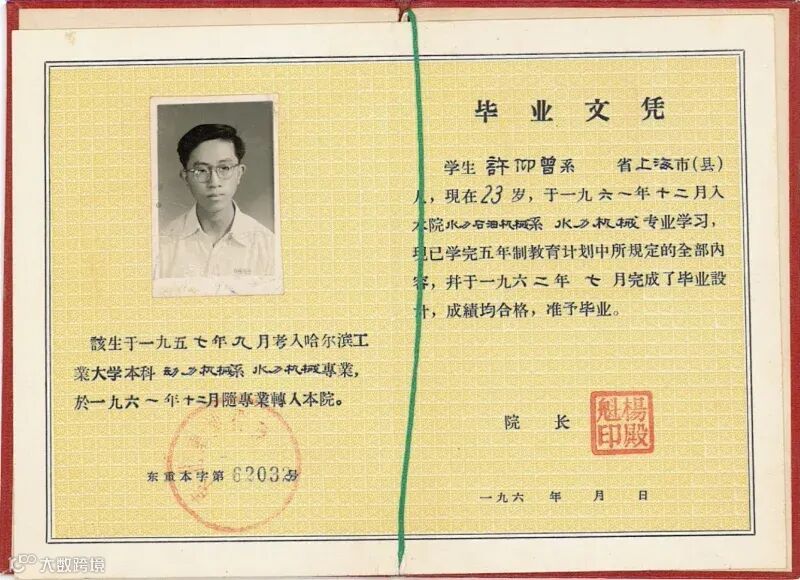 該生于一九五七年九月考入哈尔滨工
業大学本科动力机械系水力机械專業，
於一九六一年十二月隨專業轉入本院。
东重本字第62032号
毕业文凭
学生許仰曾系 省上海市(县)
人，現在23岁，于一九六一年十二月入
本院水力石油机械系水力机械专业学习，
現已学完五年制教育计划中所规定的全部内
容，并于一九六二年七月完成了毕业設
计，成績均合格，准予毕业。
院长
楊殿魁印
一九六 年 月 日
大数跨境